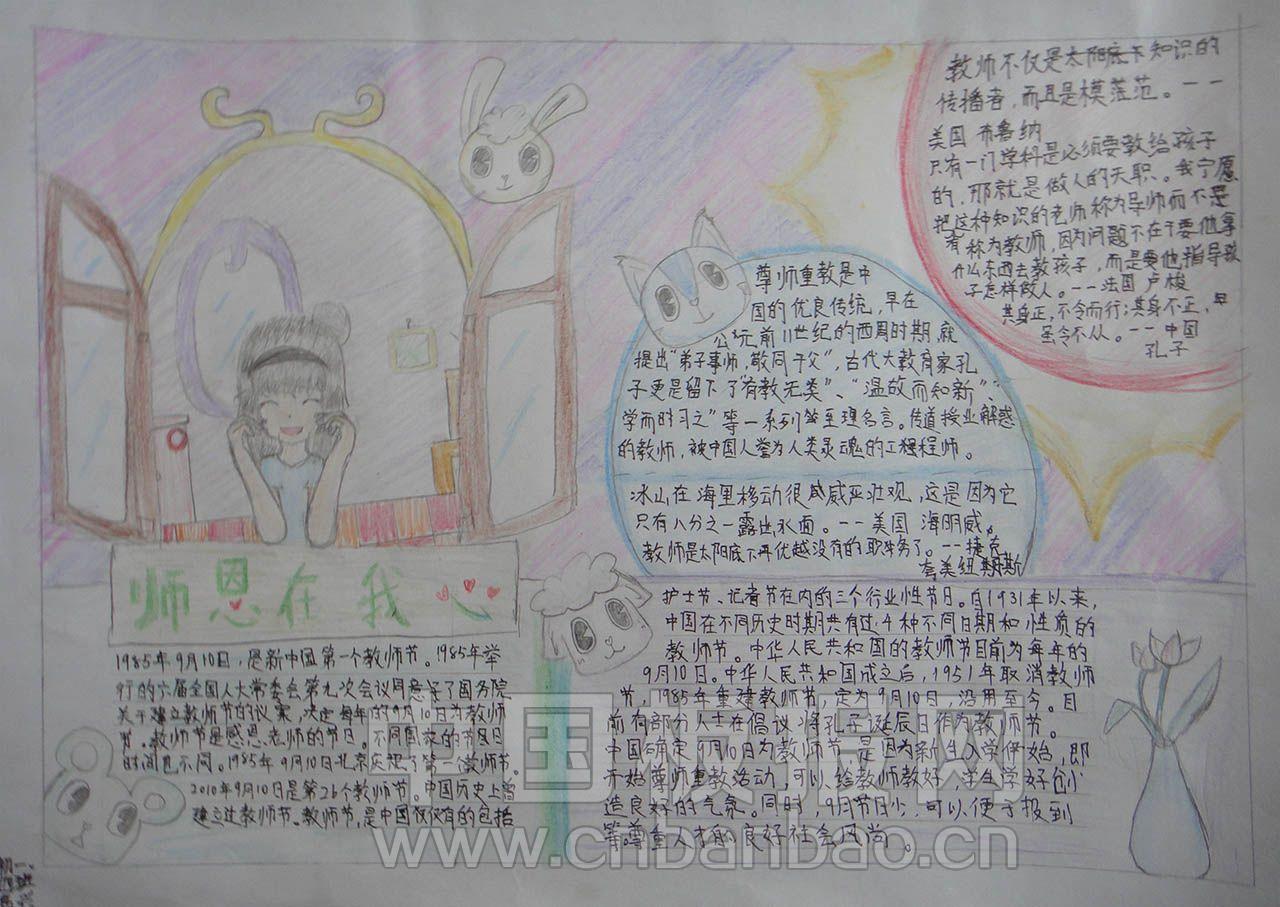 教师不仅是太阳底下知识的
传播者，而且是模范。——
美国 布鲁纳
只有一门学科是必须要教给孩子
的，那就是做人的天职。我宁愿
把这种知识的老师称为导师而不是
称为教师，因为问题不在于要他拿
什么东西去教孩子，而是要他指导孩
子怎样做人。——法国 卢梭
其身正，不令而行；其身不正，
虽令不从。——中国
孔子
尊师重教是中
国的优良传统，早在
公元前11世纪的西周时期，就
提出“弟子事师，敬同于父”，古代大教育家孔
子更是留下了“有教无类”、“温故而知新”、
学而时习之”等一系列至理名言。传道授业解惑
的教师，被中国人誉为人类灵魂的工程师。
冰山在海里移动很威严壮观，这是因为它
只有八分之一露出水面。——美国 海明威。
教师是太阳底下再优越没有的职务了。——捷克
夸美纽斯
师恩在我心
1985年9月10日，是新中国第一个教师节。1985年举
行的六届全国人大常委会第九次会议同意了国务院
关于建立教师节的议案，决定每年的9月10日为教师
节。教师节是感恩老师的节日。不同国家的节日
时间也不同。1985年9月10日北京庆祝了第一个教师节。
2010年9月10日是第26个教师节。中国历史上曾
建立过教师节。教师节，是中国仅仅有的包括
护士节、记者节在内的三个行业性节日。自1931年以来，
中国在不同历史时期共有过4种不同日期和性质的
教师节。中华人民共和国的教师节目前为每年的
9月10日。中华人民共和国成立之后，1951年取消教师
节，1985年重建教师节，定为9月10日，沿用至今。目
前有部分人士在倡议将孔子诞辰日作为教师节。
中国确定9月10日为教师节，是因为新生入学伊始，即
开始尊师重教活动，可以给教师教好，学生学好创
造良好的气氛。同时，9月节日少，可以便于报到
等尊重人才的良好社会风尚。
中国板报网
www.cnbanbao.cn